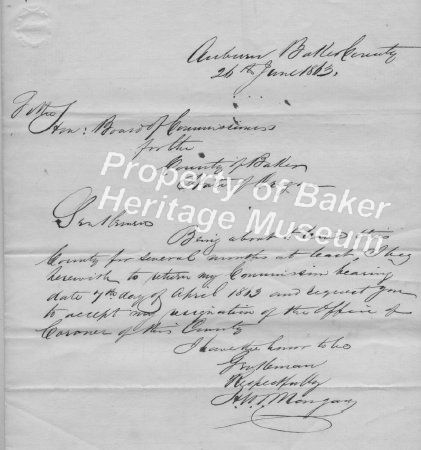 Auburn Baker County
26th June 1863.
To the
Hon: Board of Commissioners
for the
County of Baker
State of Oregon
Gentlemen
Being about to leave this
County for several months at least, I beg
herewith to return my Commission bearing
date 7th day of April 1863 and request you
to accept my resignation of the Office of
Coroner of this County
I have the honor to be
Gentlemen
Respectfully
Property of Baker
Heritage Museum